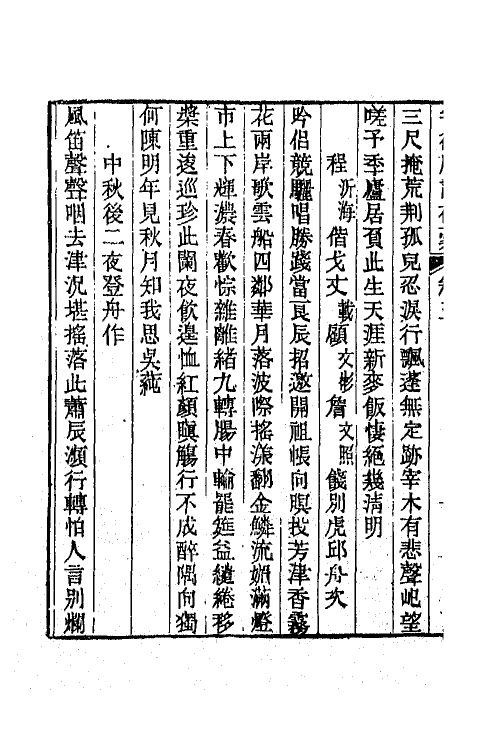 三尺掩荒荆孤兒忍淚行飄蓬無定跡宰木有悲聲屺望
嗟予季廬居負此生天涯新麥飯悽絶幾淸明
程沂海偕戈丈載顧文彬詹文照餞別虎邱舟次
吟侣競驪唱勝踐當良辰招邀開祖帳向暝投芳津香霧
花兩岸歌雲船四鄰華月落波際搖漾翻金鱗流媚滿燈
市上下輝濃春歡悰雜離緒九轉腸中輪罷筵益繾綣移
槳重逡巡珍此闌夜飲遑恤紅顏瞋觴行不成醉隅向獨
何陳明年見秋月知我思吳蒓
中秋後二夜登舟作
風笛聲聲咽去津況堪搖落此蕭辰瀕行轉怕人言别爛